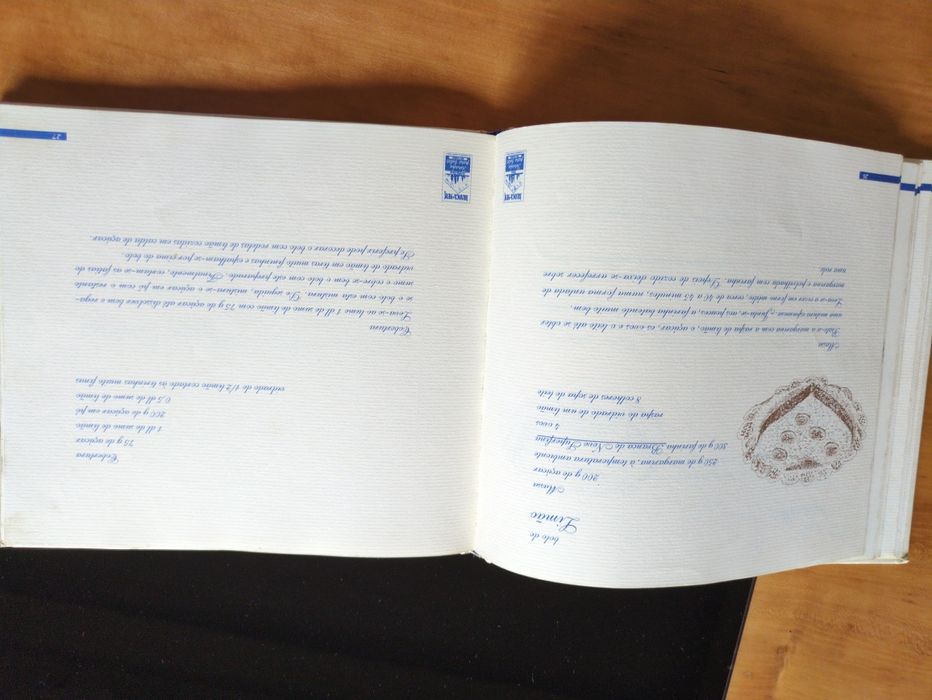 bolo de
Limão
Massa
200 g de açúcar
250 g de margarina, à temperatura ambiente
300 g de farinha Branca de Neve Superfina
4 ovos
raspa do vidrado de um limão
8 colheres de sopa de leite
Massa
Bate-se a margarina com a raspa do limão, o açúcar, os ovos e o leite até se obter
uma mistura espumosa. Junta-se, aos poucos, a farinha batendo muito bem.
Leva-se a cozer em forno médio, cerca de 40 a 45 minutos, numa forma untada
margarina e polvilhada com farinha. Depois de cozido deixa-se arrefecer sobre
uma rede.
26
Cobertura
75 g de açúcar
1 dl de sumo de limão
200 g de açúcar em pó
0,5 dl de sumo de limão
vidrado de 1/2 limão cortado às tirinhas muito finas
Cobertura
Leva-se ao lume 1 dl de sumo de limão com 75 g de açúcar até dissolver bem e rega-
se o bolo com esta mistura. De seguida, mistura-se o açúcar em pó com o restante
sumo e cobre-se bem o bolo com este preparado. Finalmente, cortam-se as fatias do
vidrado de limão em tiras muito fininhas e espalham-se por cima do bolo.
Se preferir pode decorar o bolo com rodelas de limão cozidas em calda de açúcar.
27